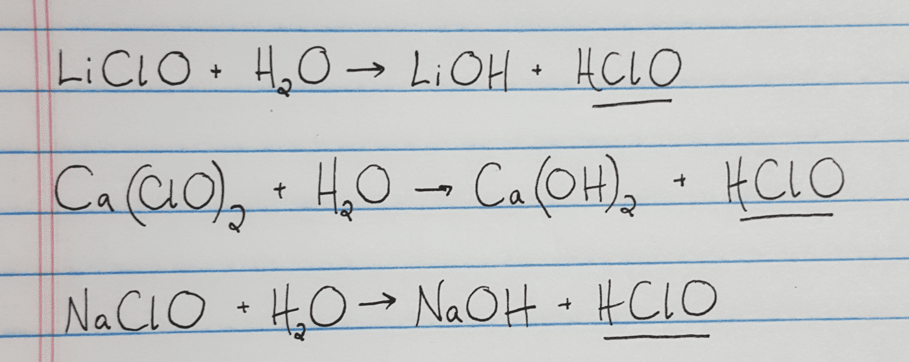 LiClO + H₂O → LiOH + HClO
Ca(ClO)₂ + H₂O → Ca(OH)₂ + HClO
NaClO + H₂O → NaOH + HClO